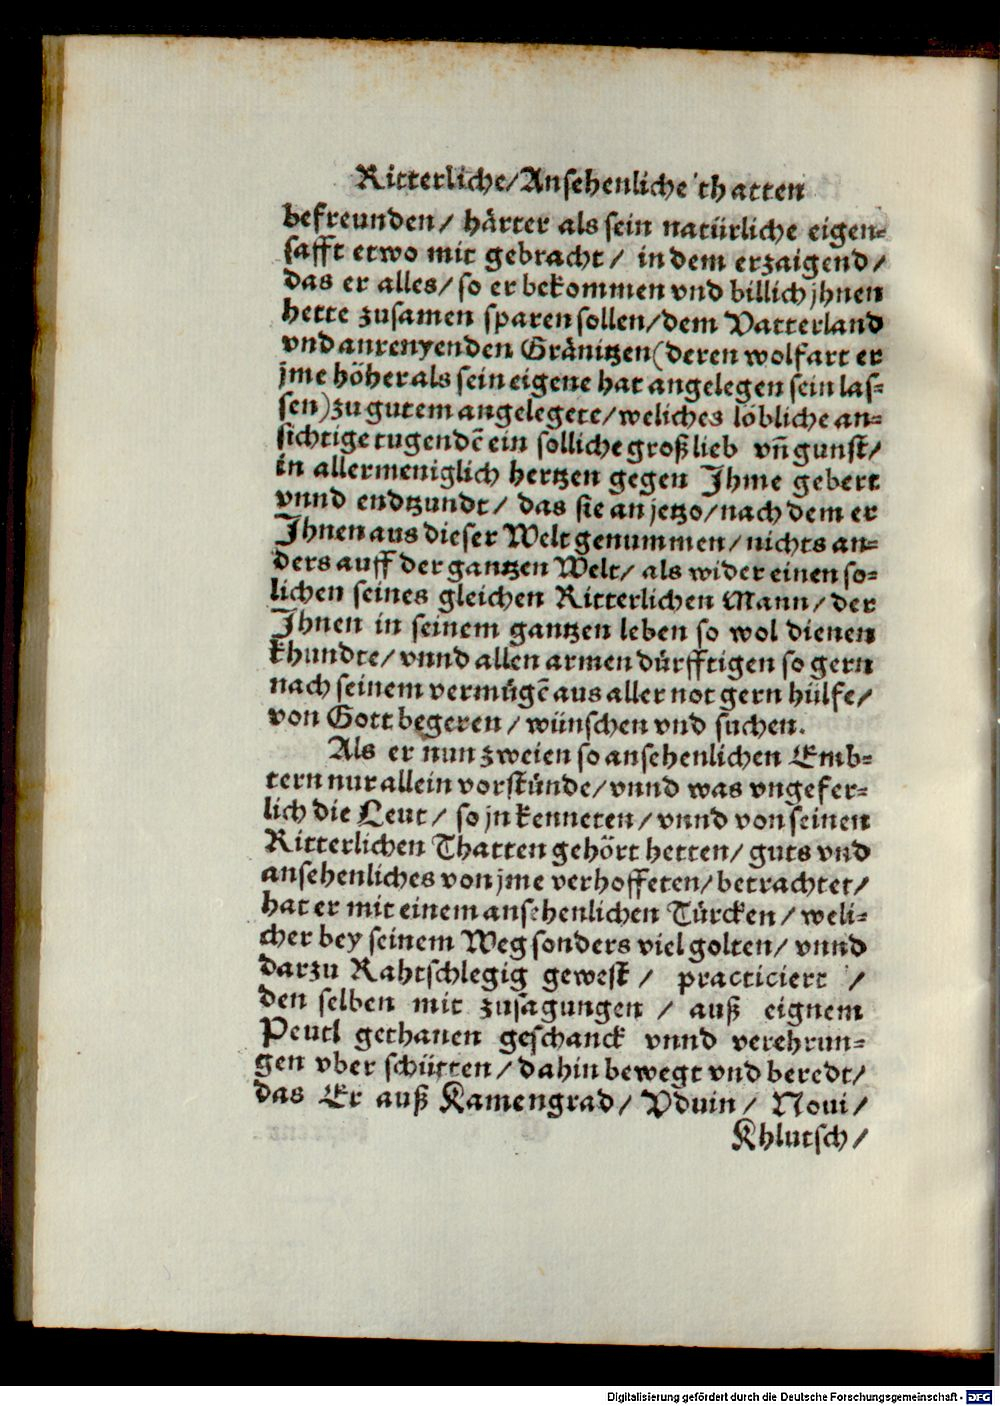 Ritterliche/Ansehenliche thatten
befreunden/ härter als sein natürliche eigen⸗
safft etwo mit gebracht/ in dem erzaigend/
das er alles/ so er bekommen vnd billich jhnen
hette zusamen sparen sollen/dem Vatterland
vnd anrenyenden Gränitzen(deren wolfart er
jme höher als sein eigene hat angelegen sein las⸗
sen)zu gutem angelegete/weliches löbliche an⸗
sichtige tugendē ein solliche groß lieb vñ gunst/
in allermeniglich hertzen gegen Ihme gebert
vnnd endtzundt/ das sie an jetzo/nach dem er
Ihnen aus dieser Welt genummen/nichts an⸗
ders auff der gantzen Welt/ als wider einen so⸗
lichen seines gleichen Ritterlichen Mann/der
Ihnen in seinem gantzen leben so wol dienen
khundte/vnnd allen armen dürfftigen so gern
nach seinem vermügē aus aller not gern hülfe/
von Gott begeren/wünschen vnd suchen.
Als er nun zweien so ansehenlichen Emb⸗
tern nur allein vorstünde/vnnd was vngefer⸗
lich die Leut/ so jn kenneten/vnnd von seinen
Ritterlichen Thatten gehört hetten/ guts vnd
ansehenliches von jme verhoffeten/betrachtet/
hat er mit einem ansehenlichen Türcken/weli⸗
cher bey seinem Weg sonders viel golten/ vnnd
darzu Rahtschlegig gewest/ practiciert /
den selben mit zusagungen / auß eignem
Peutl gethanen geschanck vnnd verehrun⸗
gen vber schütten/dahin bewegt vnd beredt/
das Er auß Kamengrad/ Vduin/ Noui/
Khlutsch/
Digitalisierung gefördert durch die Deutsche Forschungsgemeinschaft - DFG